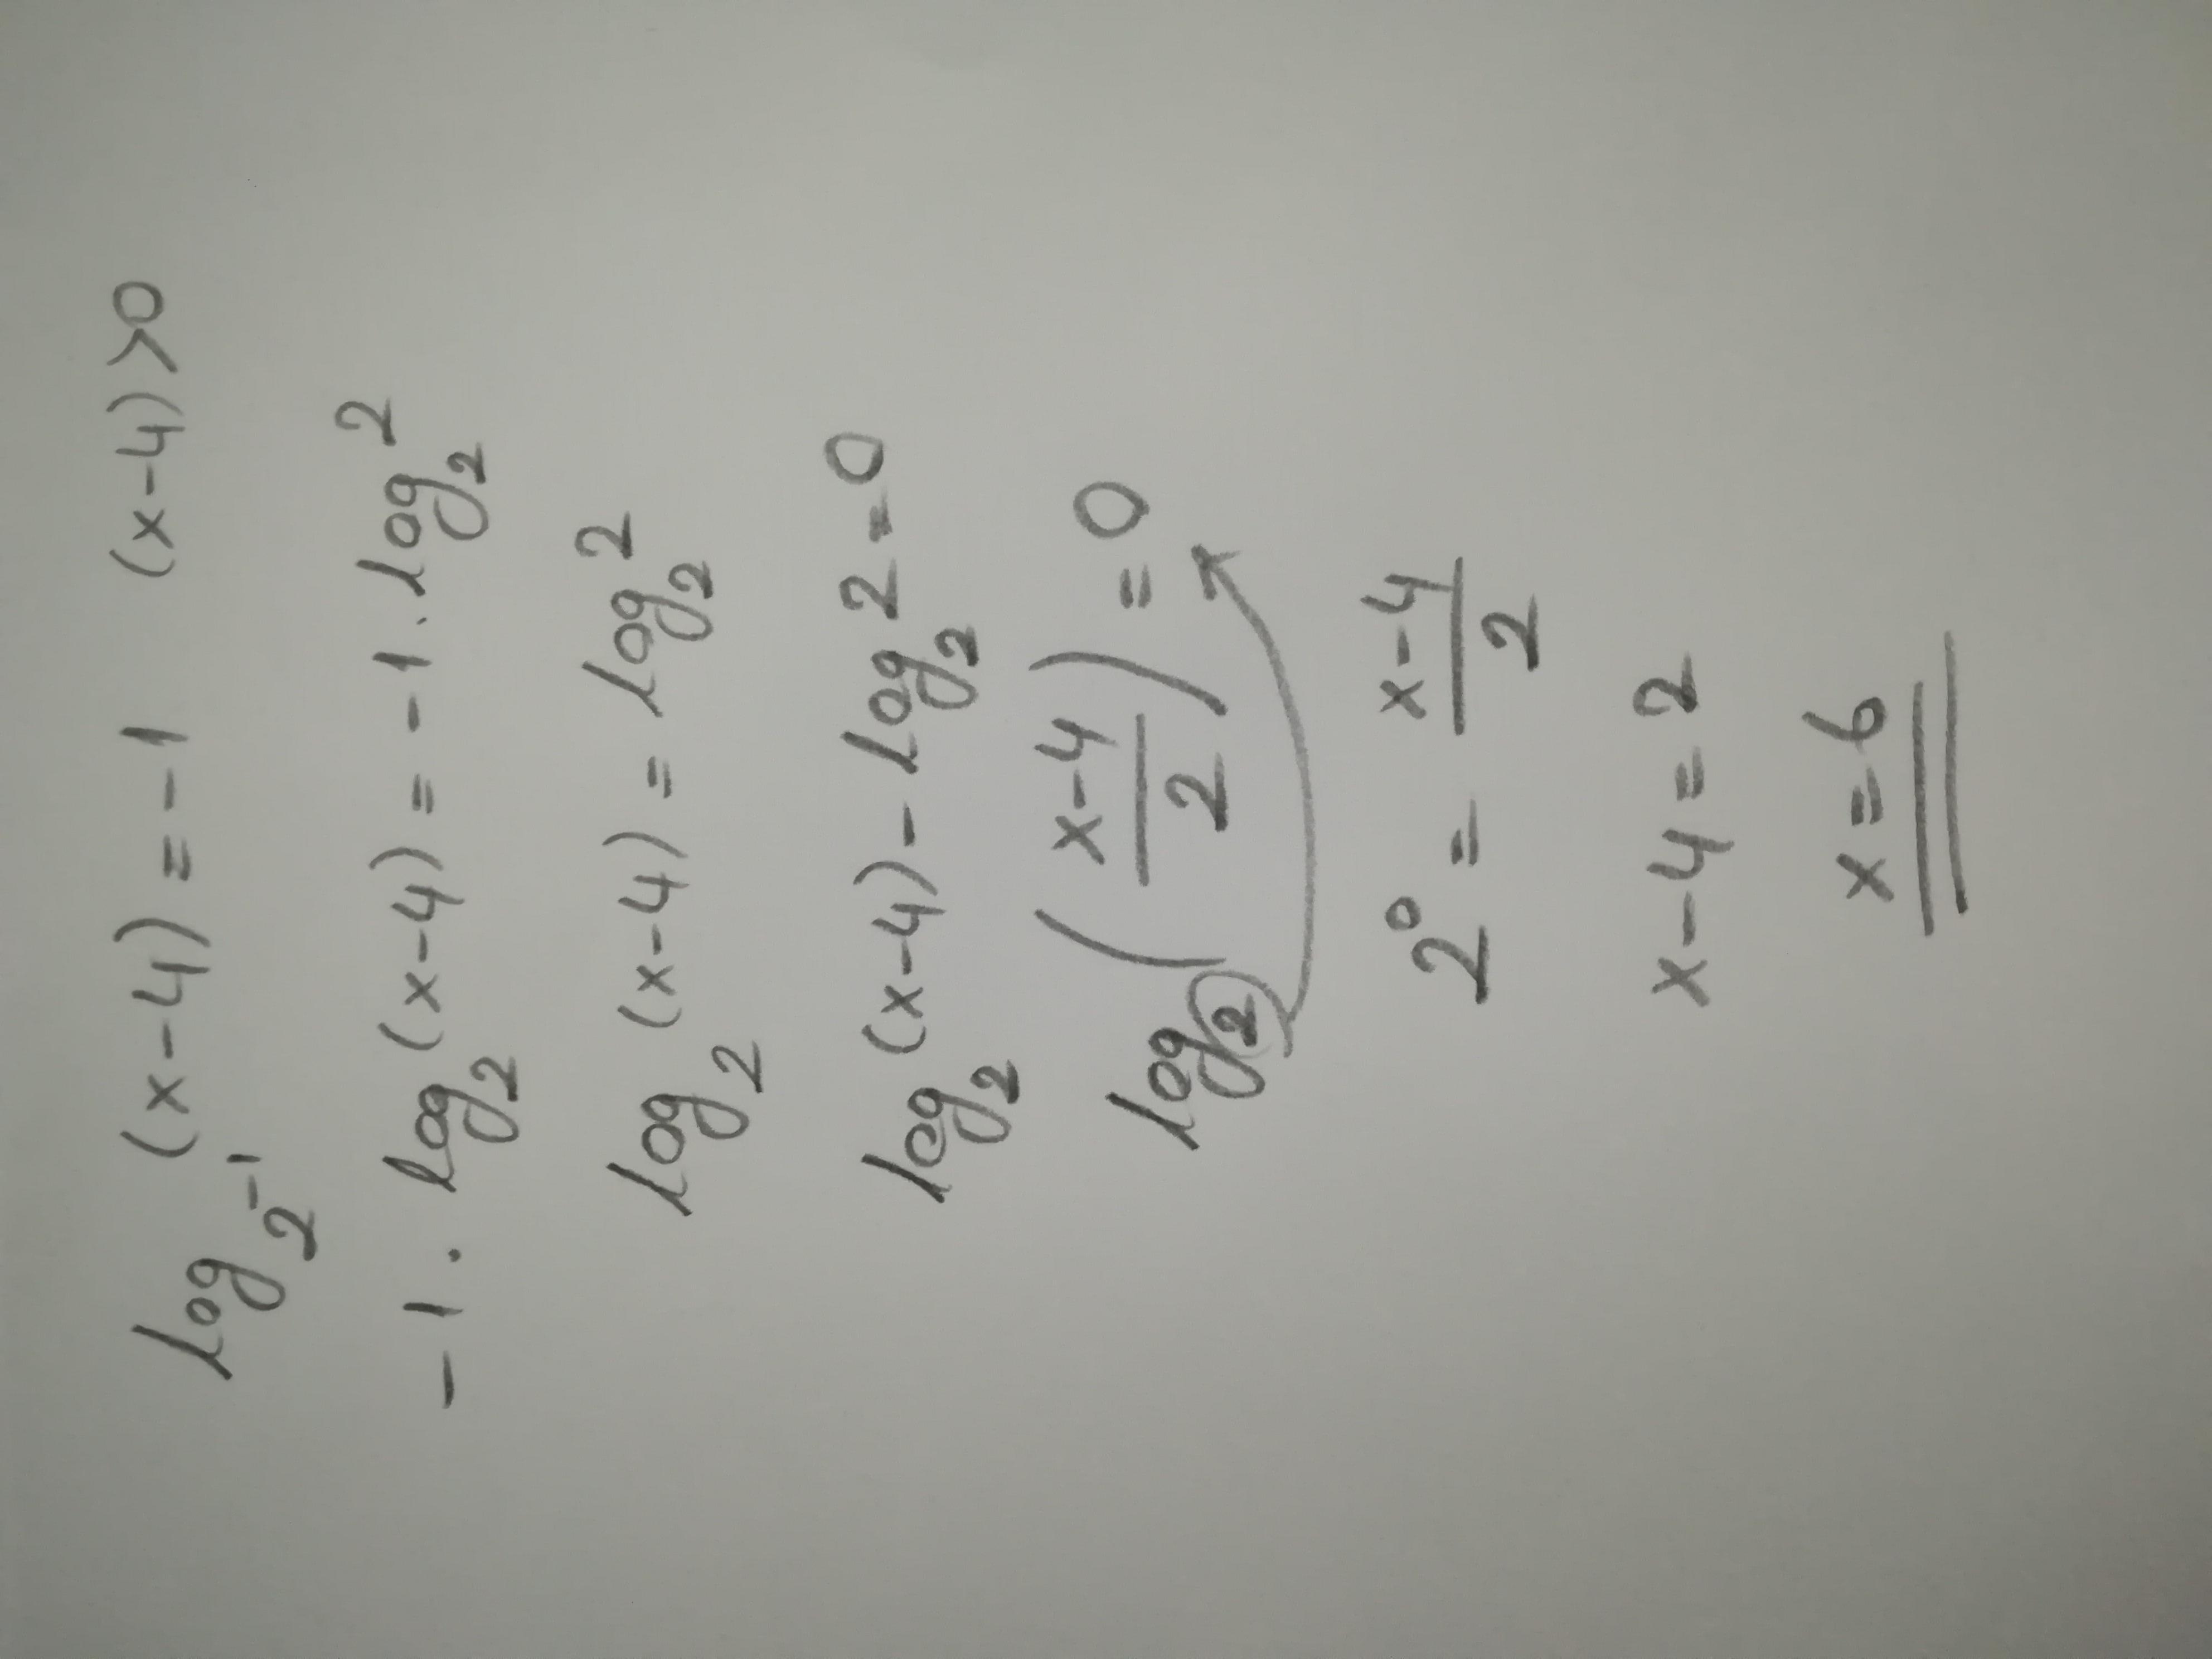 log₂⁻¹ (x-4) = -1 (x-4)>0
-1 · log₂ (x-4) = -1 · log₂ 2
log₂ (x-4) = log₂ 2
log₂ (x-4) - log₂ 2 = 0
log₂ ((x-4)/2) = 0
2⁰ = (x-4)/2
x-4 = 2
x = 6